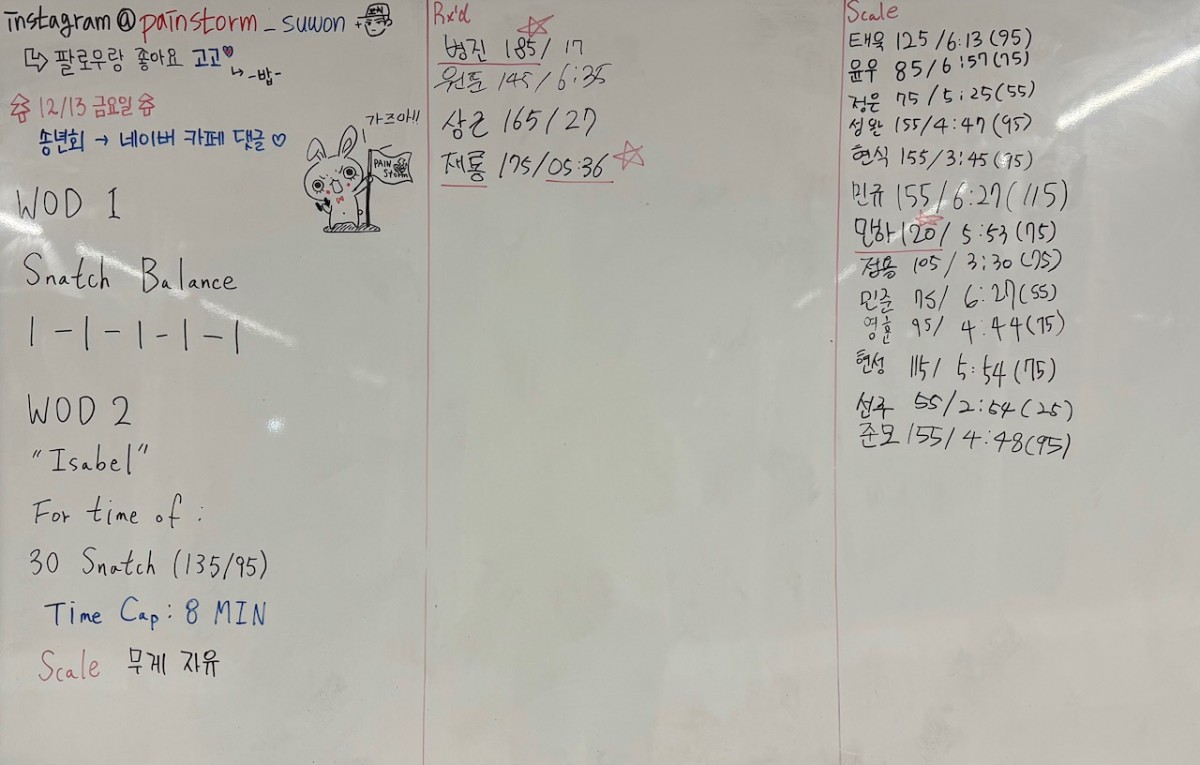 instagram@painstorm_suwon
팔로우랑 좋아요 고고
-밥-
12/13 금요일
송년회 → 네이버 카페 댓글♡
가즈아!!
PAIN
Storm
WOD 1
Snatch Balance
1-1-1-1-1
WOD 2
"Isabel"
For time of:
30 Snatch (135/95)
Time Cap: 8 MIN
Scale 무게 자유
Rx'd
병진 185/17
원준 145/6:35
상근 165/27
재룡 175/05:36
Scale
태욱 125/6:13(95)
윤우 85/6:57(75)
정은 75/5:25(55)
성완 155/4:47(95)
현식 155/3:45(75)
민규 155/6:27(115)
민하 120/5:53(75)
정용 105/3:30(75)
민준 75/6:27(55)
영훈 95/4:44(75)
현성 115/5:54(75)
선주 55/2:54(25)
준모 155/4:48(95)